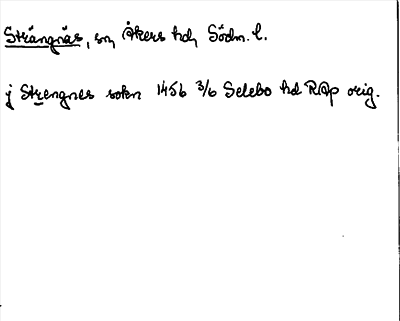 Strängnäs, sn, Åkers hd, Södm. l.
j Strengnes sokn 1456 3/6 Selebo hd RAp orig.